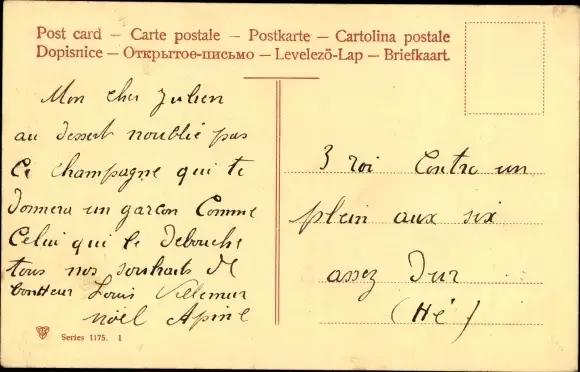 Post card – Carte postale – Postkarte – Cartolina postale
Dopisnice – Открытое-письмо – Levelező-Lap – Briefkaart.
Mon cher Julien
au dessert n'oublie pas
Ce champagne qui te
donnera un garcon Comme
Celui qui le debouche
tous nos souhaits de
bonheur Louis Villemur
noël Apine
3 roi Contre un
plein aux six
assez Dur
(Hé)
Series 1175. 1